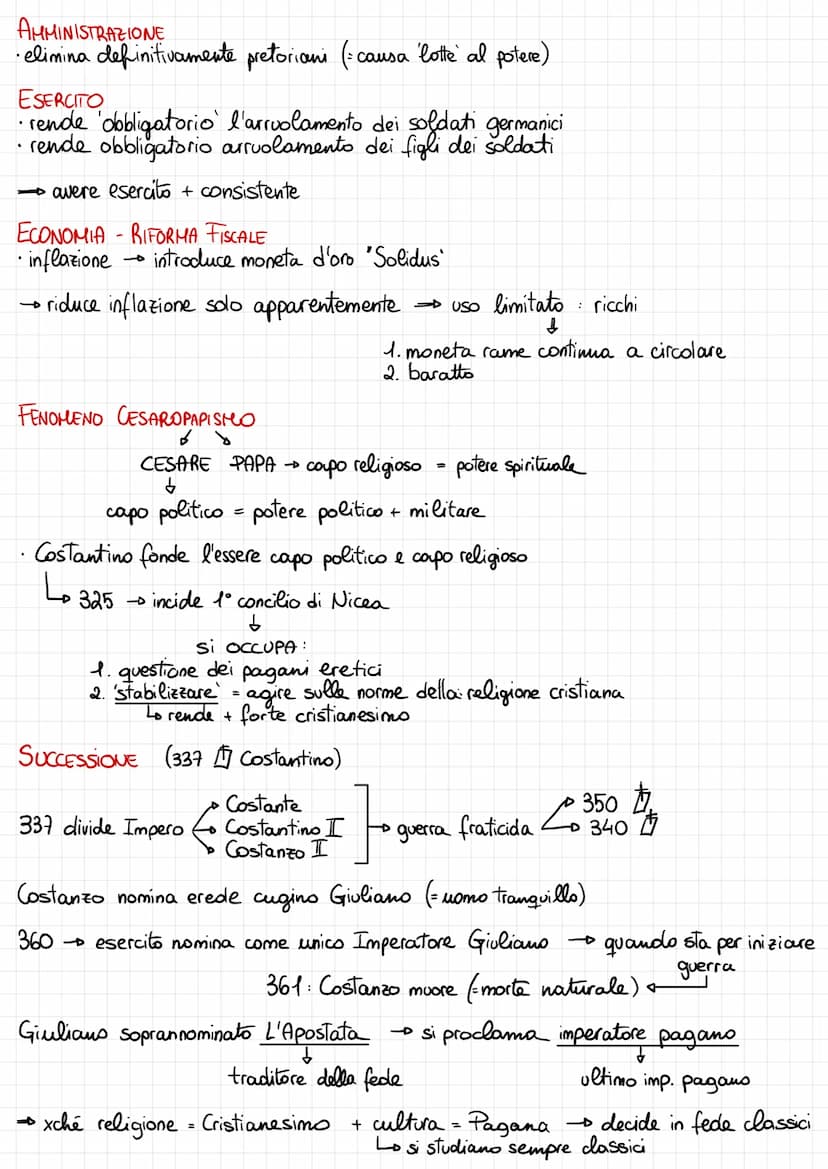 AMMINISTRAZIONE
· elimina definitivamente pretoriani (= causa 'lotte' al potere)
ESERCITO
· rende 'obbligatorio' l'arruolamento dei soldati germanici
· rende obbligatorio arruolamento dei figli dei soldati
→ avere esercito + consistente
ECONOMIA - RIFORMA FISCALE
· inflazione → introduce moneta d'oro 'Solidus'
→ riduce inflazione solo apparentemente → uso limitato : ricchi
↓
1. moneta rame continua a circolare
2. baratto
FENOMENO CESAROPAPISMO
↙ ↘
CESARE PAPA → capo religioso = potere spirituale
↓
capo politico = potere politico + militare
· Costantino fonde l'essere capo politico e capo religioso
↳ 325 → incide 1° concilio di Nicea
↓
si OCCUPA :
1. questione dei pagani eretici
2. 'stabilizzare' = agire sulle norme della religione cristiana
↳ rende + forte cristianesimo
SUCCESSIONE (337 ✝ Costantino)
→ Costante → 350 ✝
337 divide Impero → Costantino II → guerra fraticida → 340 ✝
→ Costanzo II
Costanzo nomina erede cugino Giuliano (= uomo tranquillo)
360 → esercito nomina come unico Imperatore Giuliano → quando sta per iniziare
guerra
361 : Costanzo muore (= morte naturale) ←
Giuliano soprannominato L'Apostata → si proclama imperatore pagano
↓ ↓
traditore della fede ultimo imp. pagano
→ xché religione = Cristianesimo + cultura = Pagana → decide in fede classici
↳ si studiano sempre classici